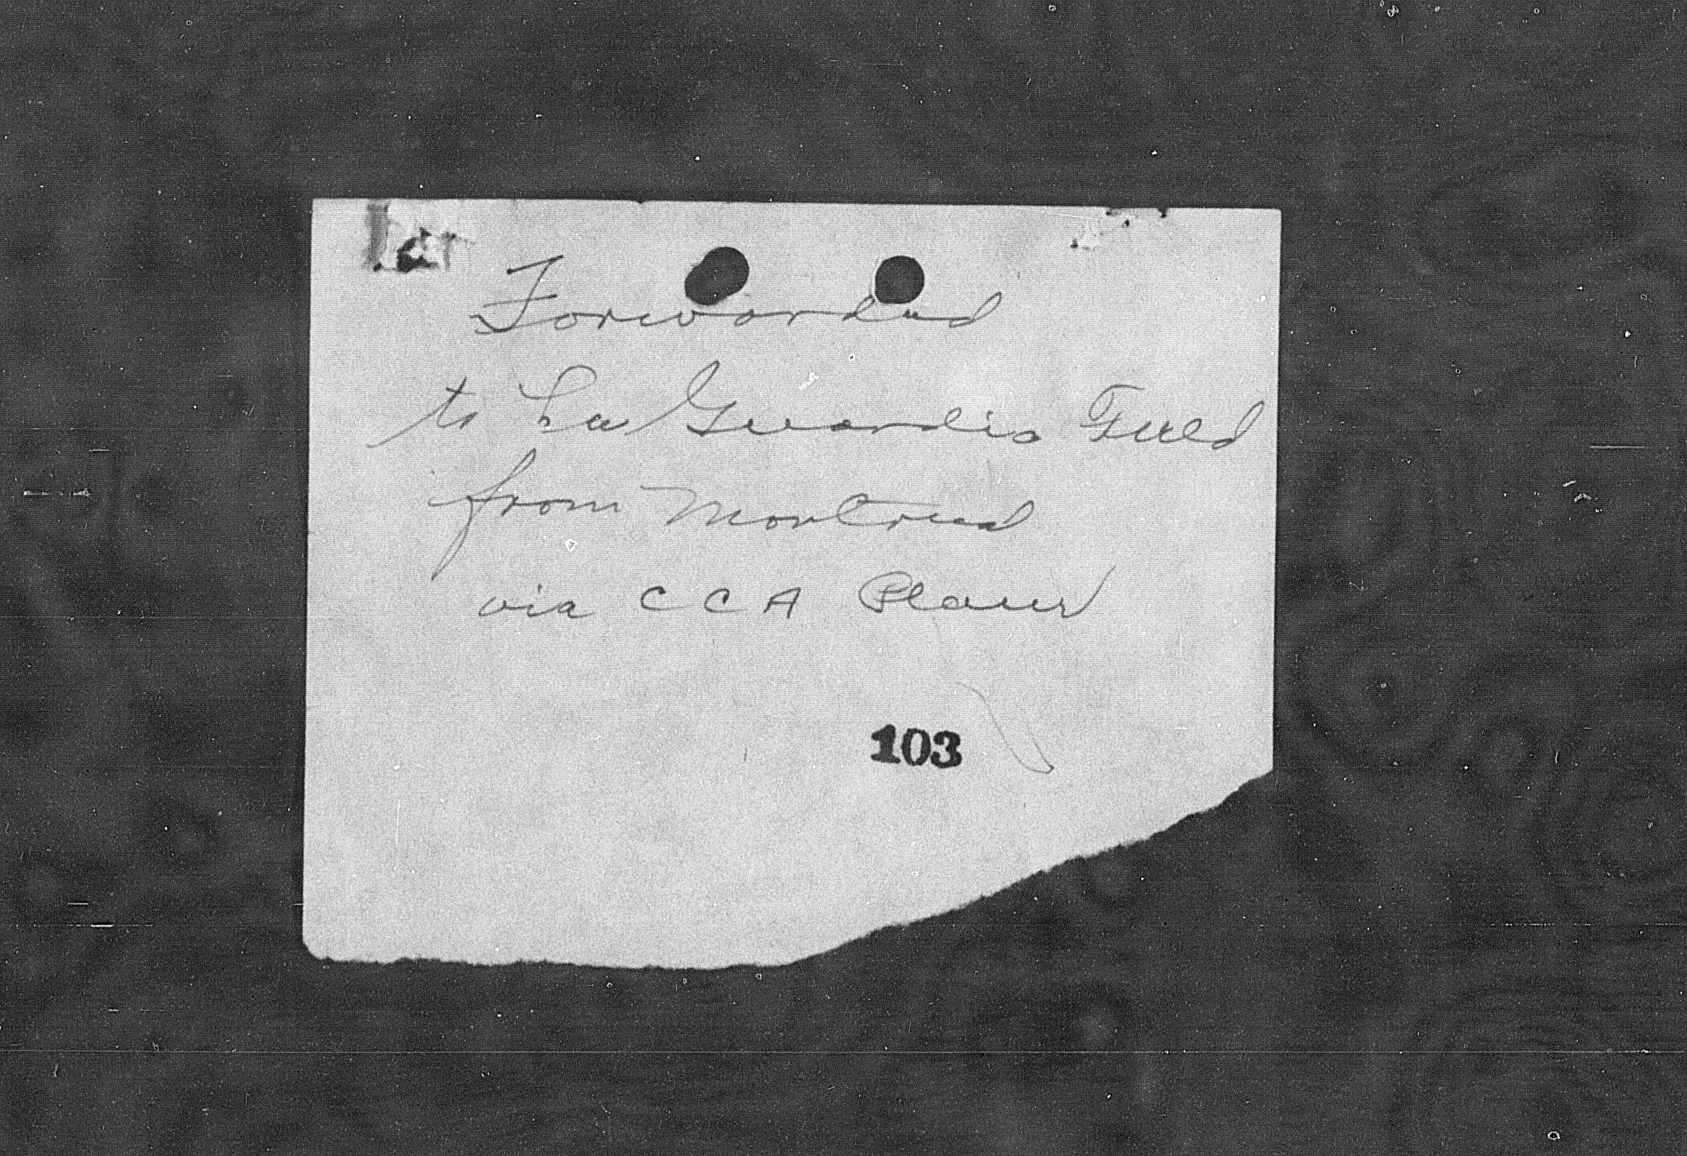 Forwarded
to La Guardia Field
from Montreal
via CCA Plane
103